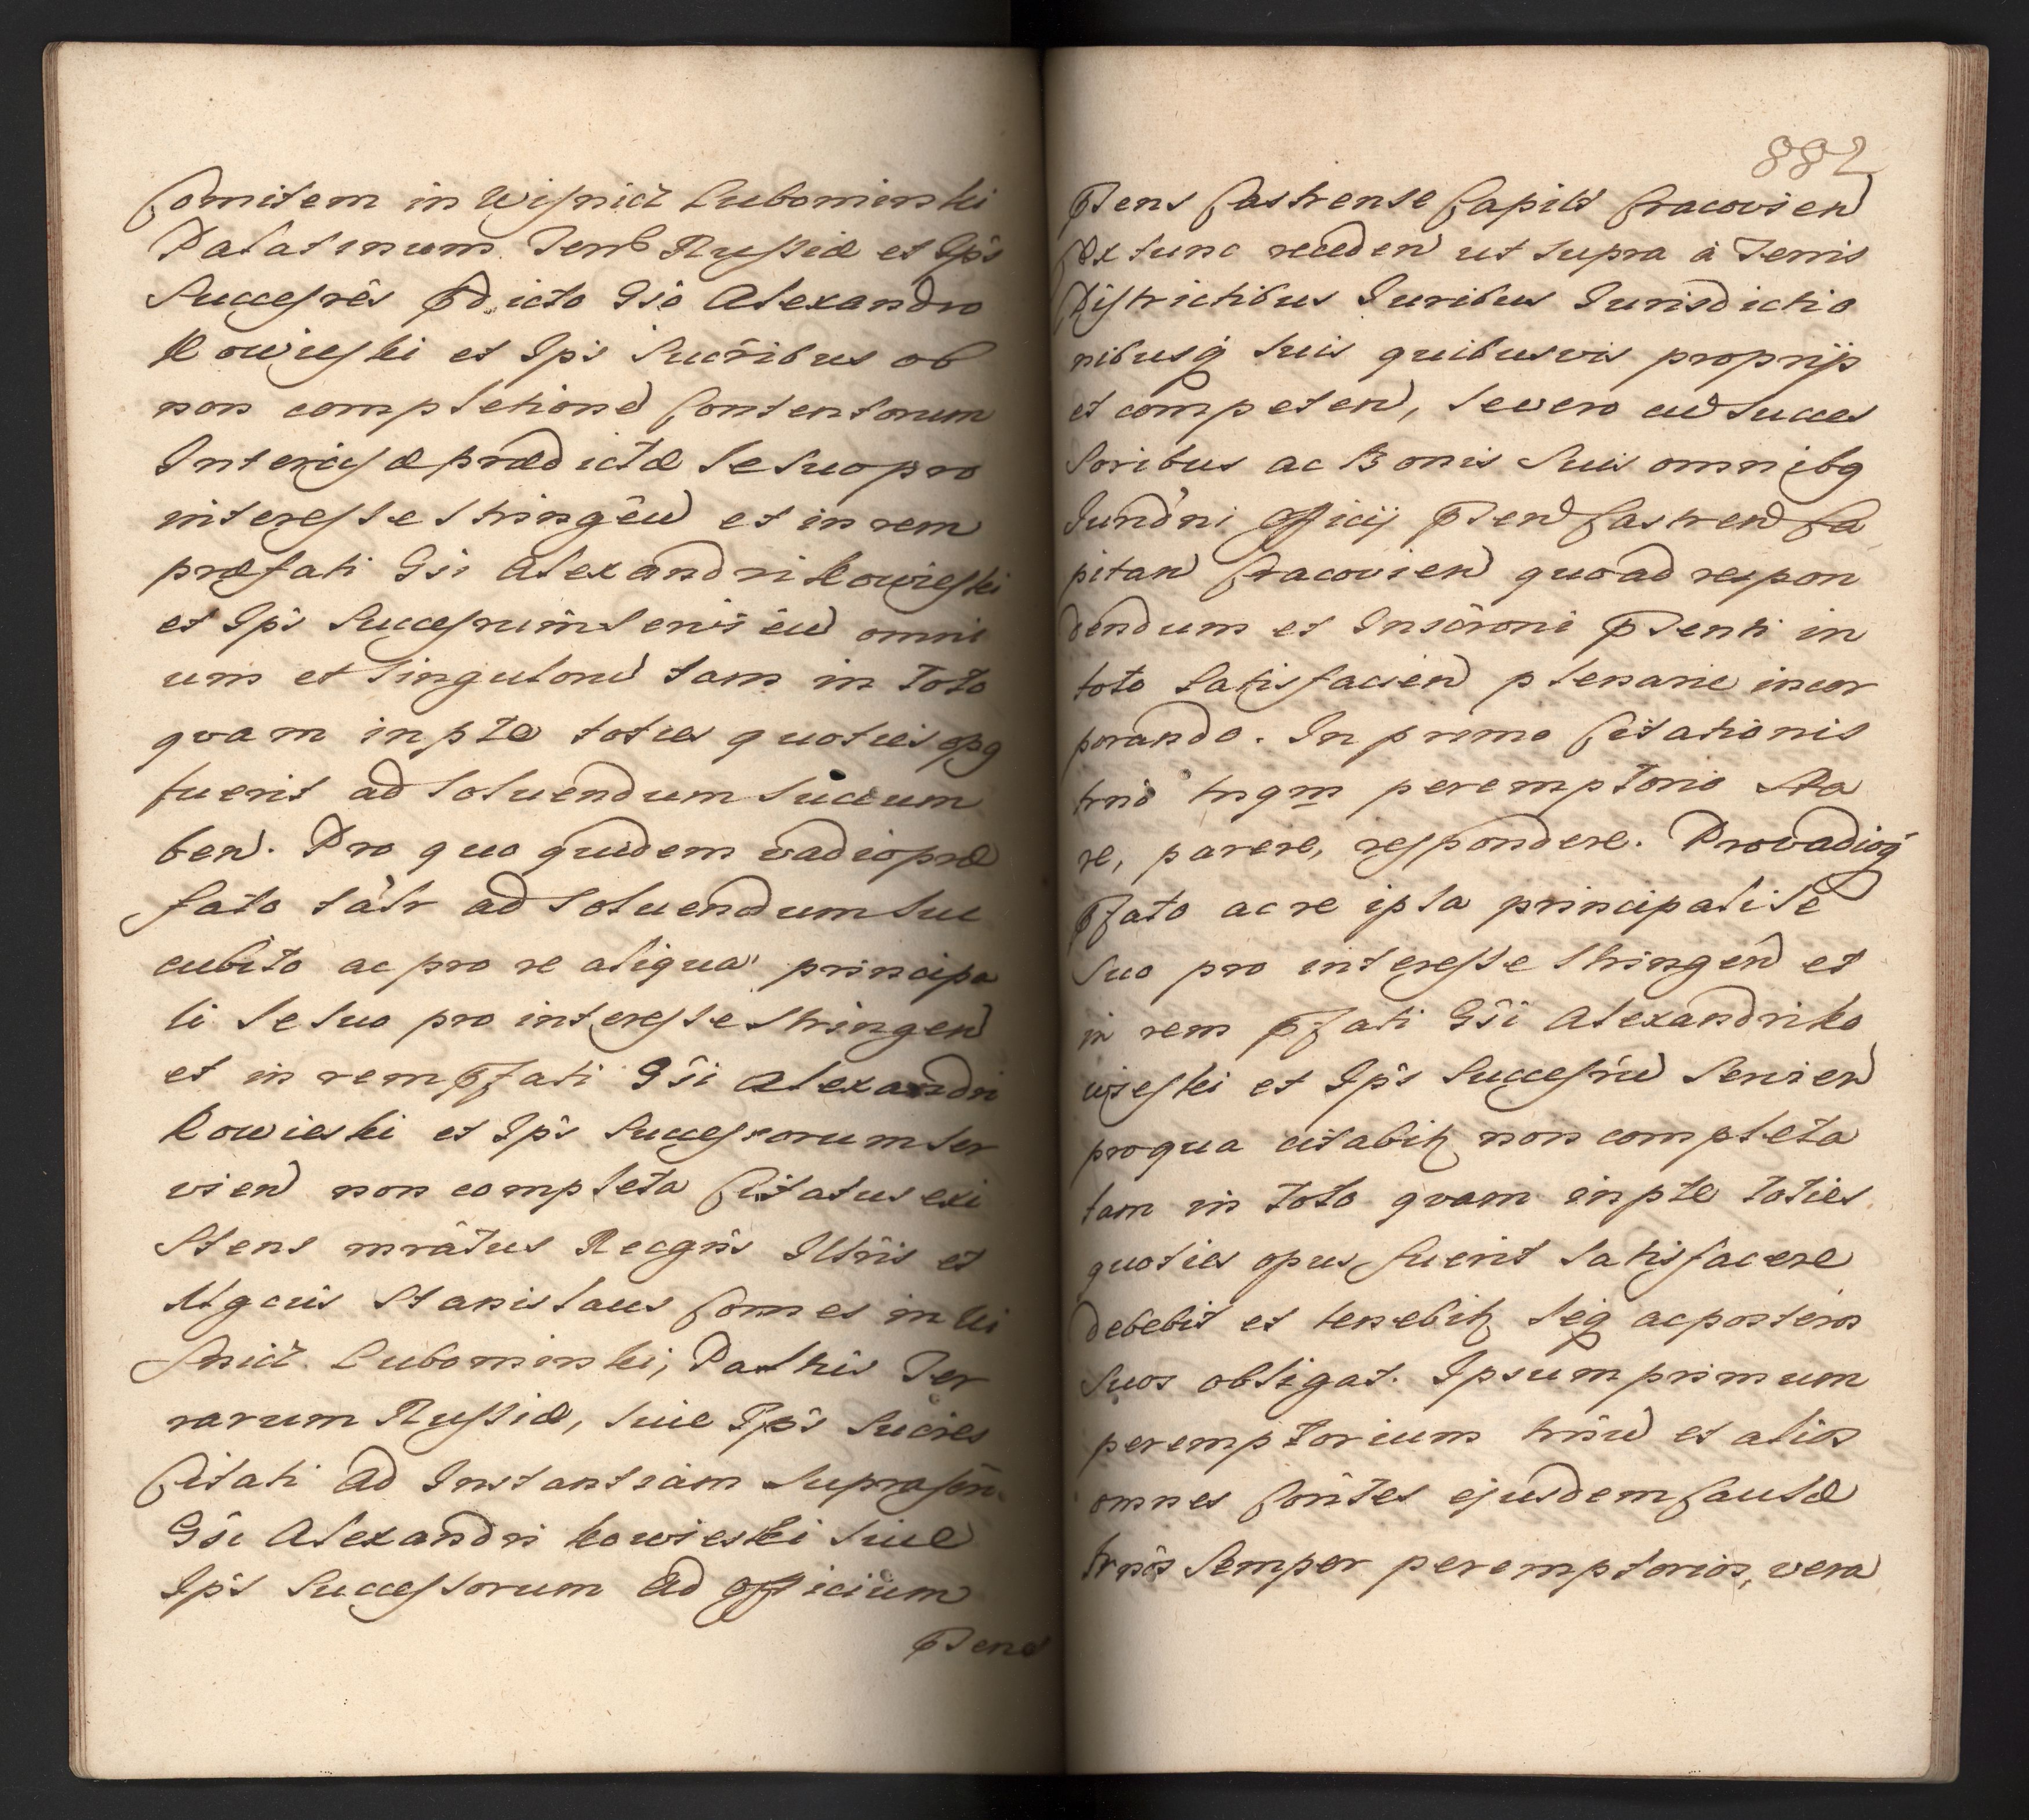 Comitem in Wisnicz Lubomirski
Palatinum Terrs Russiæ et Ips
Succesres Pdicto Gso Alexandro
Kowieski et Ips Sucribus ob
non completione Contentorum
Intercisæ prædictæ se suo pro
interesse stringeñ et in rem
præfati Gsi Alexandri Kowieski
et Ips Succesrum servieñ omni
um et singuloru tam in toto
qvam in pte toties quoties opq
fuerit ad solvendum succum
ben. Pro quo quidem vadio præ
fato talr ad solvendum suc
cubito ac pro re aliqua principa
li se suo pro interesse stringen
et in rem pfati Gsi Alexandri
Kowieski et Ips Successorum ser
vien non completa Citatus exi
stens mratus Recgns Illris et
Mgcus Stanislaus Comes in Wi
snicz Lubomirski, Palnus Ter
rarum Russiæ, sive Ips Sucres
Citati ad Instantiam suprascri
Gsi Alexandri Kowieski sive
Ips Successorum ad officium
Psens
882
Psens Castrense Capile Cracovien
Ex tunc receden ut supra à Terris
Districtibus Juribus Jurisdictio
nibusq suis quibusvis proprijs
et competen, se vero cu succes
soribus ac Bonis suis omnibq
Jurndni officij Psen Castren Ca
pitan Cracovien quoad respon
dendum et Inscroni Psenti in
toto satisfacien plenarie incor
porando. In primo Citationis
trno tnqm peremptorio sta
re, parere, respondere. Pro vadioq
Pfato ac re ipsa principali se
suo pro interesse stringen et
in rem Pfati Gsi Alexandri Ko
wieski et Ips Succesru servien
pro qua citabitr non completa
tam in toto qvam in pte toties
quoties opus fuerit satisfacere
debebit et tenebitr seq ac posteros
suos obligat. Ipsum primum
peremptorium trnu et alios
omnes Contes ejusdem Causæ
trnos semper peremptorios, vera